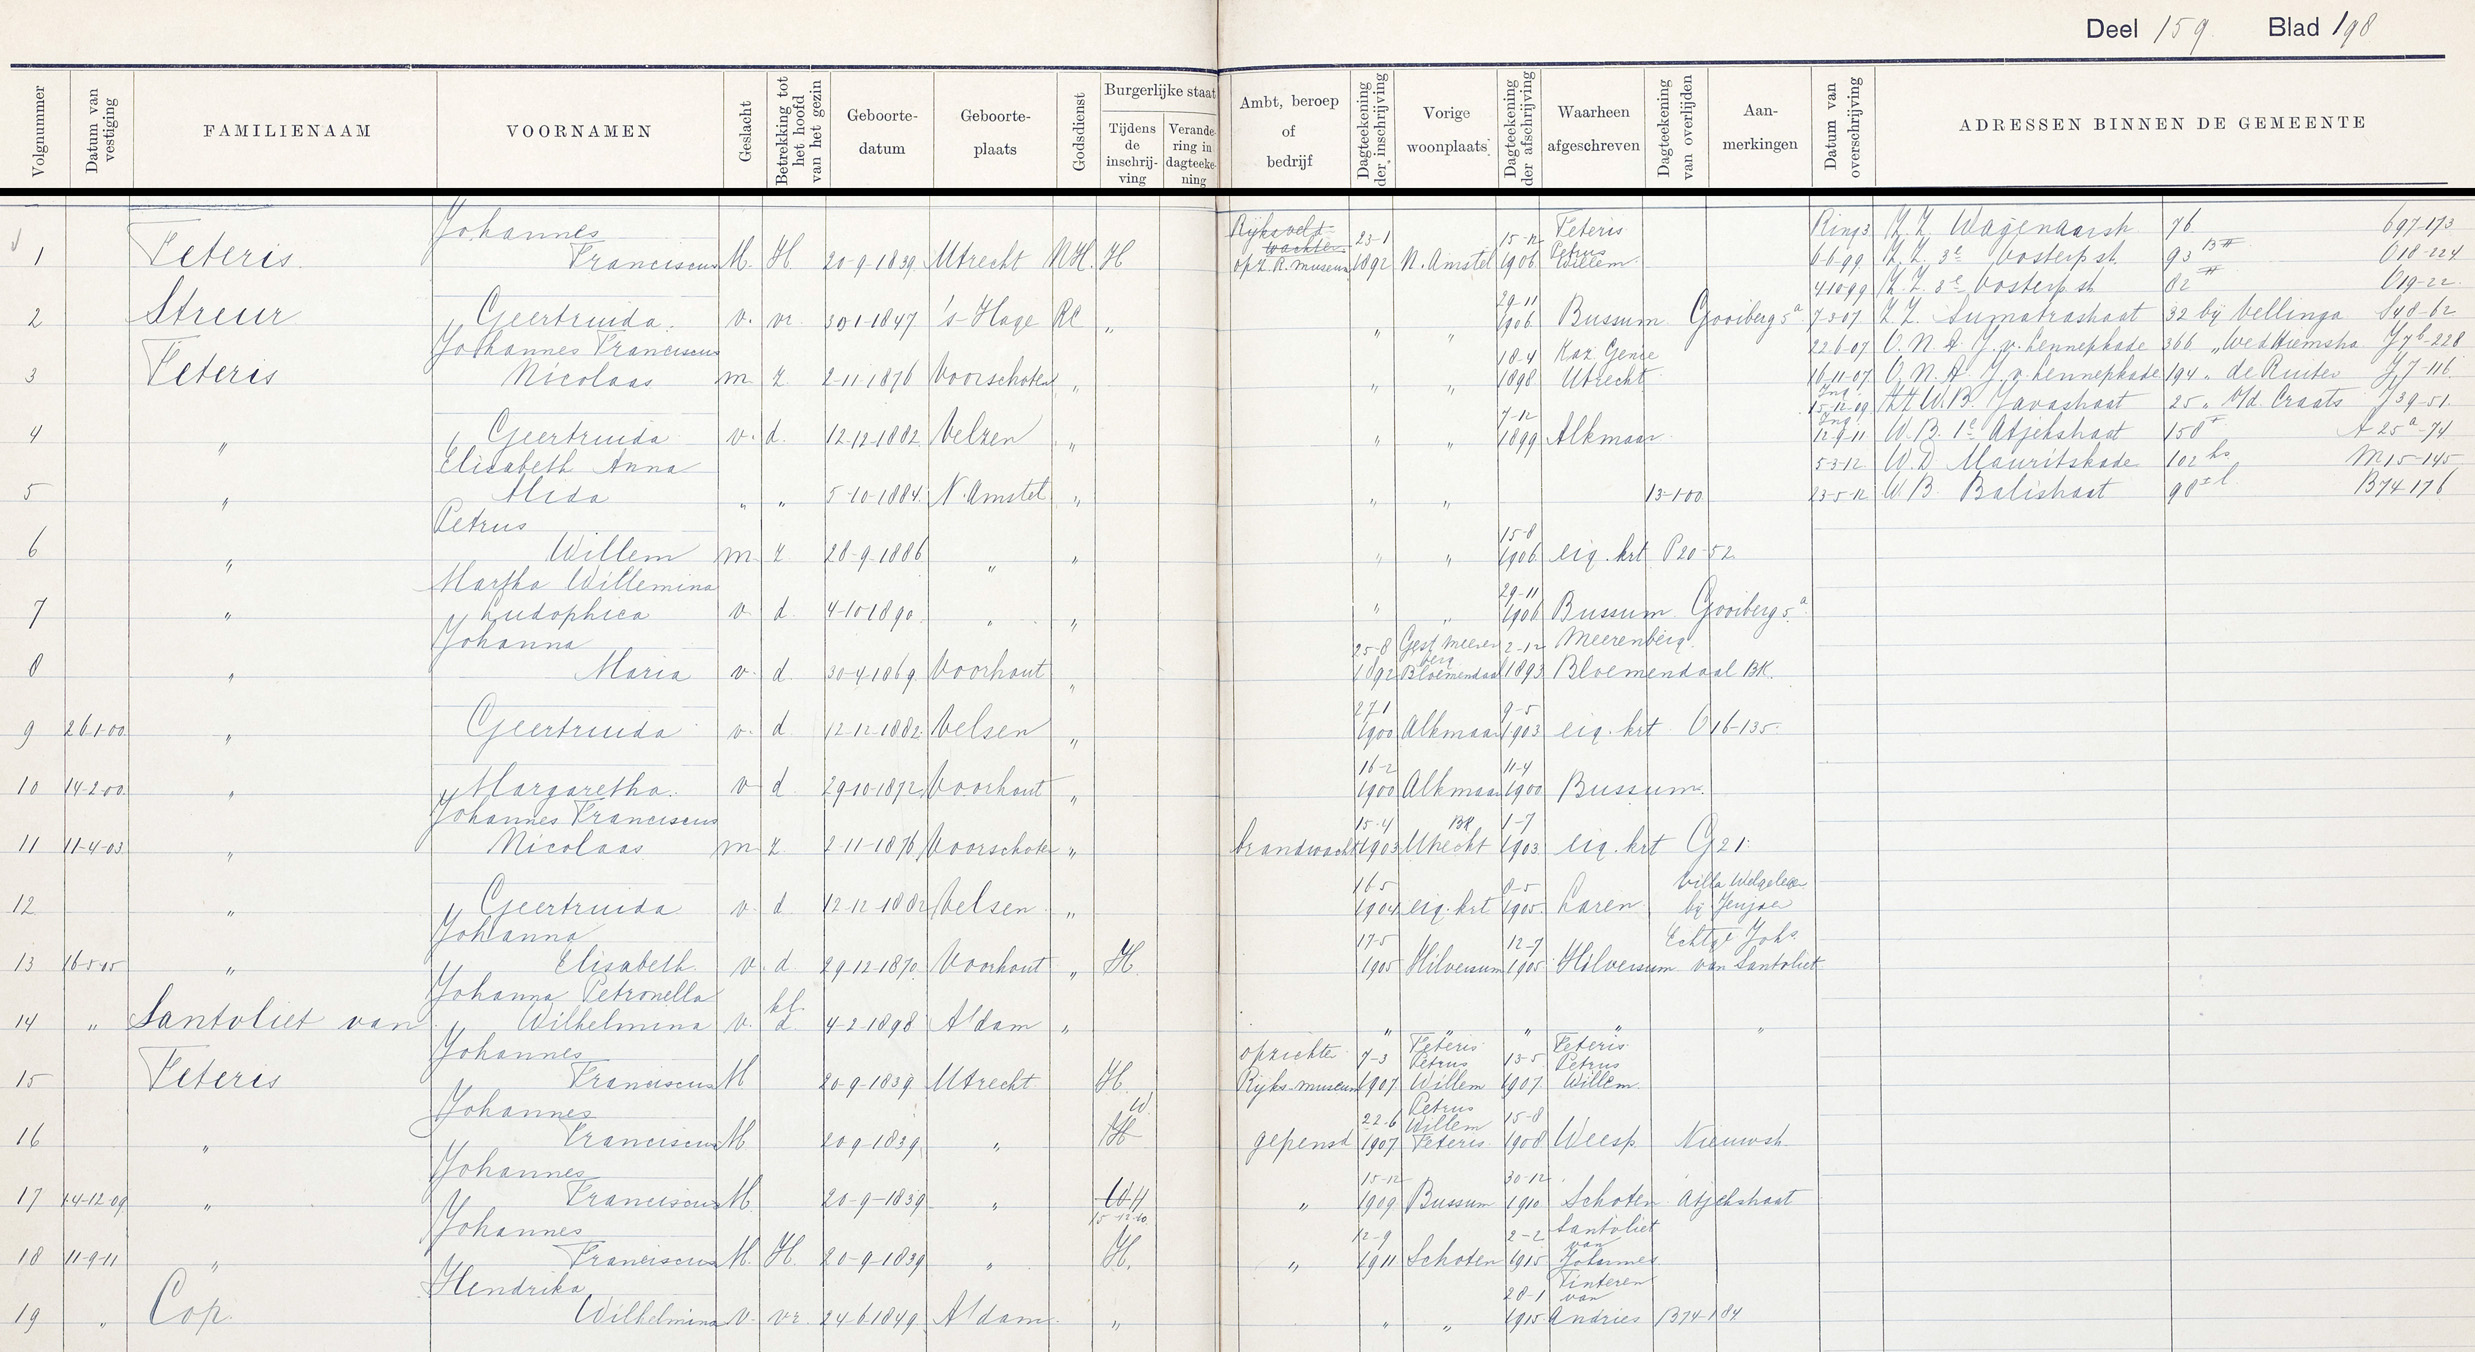 Deel 159. Blad 198
Volgnummer | Datum van vestiging | FAMILIENAAM | VOORNAMEN | Geslacht | Betrekking tot het hoofd van het gezin | Geboorte-datum | Geboorte-plaats | Godsdienst | Burgerlijke staat | Tijdens de inschrij-ving | Verande-ring in dagteeke-ning | Ambt, beroep of bedrijf | Dagteekening der inschrijving | Vorige woonplaats | Dagteekening der afschrijving | Waarheen afgeschreven | Dagteekening van overlijden | Aan-merkingen | Datum van overschrijving | ADRESSEN BINNEN DE GEMEENTE
1 Feteris Johannes Franciscus M. H. 20-9-1839 Utrecht N.H. H Rijksveldwachter opz. R. museum 23-1 1892 N. Amstel 15-12 1906 Feteris Petrus Willem
2 Streur Geertruida v. vr. 30-1-1847 's-Hage RC „ „ „ 29-11 1906 Bussum Gooiberg 5a
3 Feteris Johannes Franciscus Nicolaas m. z. 2-11-1876 Voorschoten „ „ „ 18-4 1898 Kaz. Genie Utrecht
4 „ Geertruida v. d. 12-12-1882 Velzen „ „ „ 7-12 1899 Alkmaar
5 „ Elisabeth Anna Alida „ „ 5-10-1884 N. Amstel „ „ „ 13-1-00
6 „ Petrus Willem m. z 28-9-1886 „ „ „ „ 15-8 1906 eig. krt P20-52
7 „ Martha Willemina Ludophica v. d. 4-10-1890 „ „ „ „ 29-11 1906 Bussum Gooiberg 5a
8 „ Johanna Maria v. d. 30-4-1869 Voorhout „ 25-8 1892 Gest Meerenberg Bloemendaal 2-12 1893 Meerenberg Bloemendaal BK.
9 26-1-00 „ Geertruida v. d. 12-12-1882 Velsen „ 27-1 1900 Alkmaar 9-5 1903 eig. krt O16-135.
10 14-2-00 „ Margaretha v d 29-10-1872 Voorhout „ 16-2 1900 Alkmaar 11-4 1900 Bussum.
11 11-4-03 „ Johannes Franciscus Nicolaas m z. 2-11-1876 Voorschoten „ brandwacht 15-4 1903 BK Utrecht 1-7 1903 eig. krt G21
12 „ Geertruida v. d 12-12-1882 Velsen „ 16-5 1904 eig. krt 8-5 1905 Laren Villa Welgelegen bij
13 16-5-05 „ Johanna Elisabeth v. d 29-12-1870 Voorhout „ H. 17-5 1905 Hilversum 12-7 1905 Hilversum Echtge Johs. van Santoliet
14 „ Santoliet van Johanna Petronella Wilhelmina v. kl. d. 4-2-1898 A'dam „ „ „ „ „ „
15 Feteris Johannes Franciscus M 20-9-1839 Utrecht H. opzichter Rijks-museum 7-3 1907 Feteris Petrus Willem 13-5 1907 Feteris Petrus Willem
16 „ Johannes Franciscus M 20-9-1839 „ H W. gepensd 22-6 1907 Petrus Willem Feteris 15-8 1908 Weesp Nieuwstr
17 14-12-09 „ Johannes Franciscus M. 20-9-1839 „ W H 15-12-10 „ 15-12 1909 Bussum 30-12 1910 Schoten Atjehstraat
18 11-9-11 „ Johannes Franciscus M. H. 20-9-1839 „ H. „ 12-9 1911 Schoten 2-2 1915 Santoliet van Johannes
19 „ Cop. Hendrika Wilhelmina v. vr. 24-6-1849 A'dam „ „ „ 28-1 1915 Tinteren van Andries B74-184
Ring3 Z.Z. Wagenaarstr 76 697-173
6-6-99 Z.Z. 3e Oosterp.st. 93 II O18-224
4-10-99 Z.Z. 3e Oosterp.st 82 II O19-22.
7-3-07 Z.Z. Sumatrastraat 32 bij Vellinga S48-62
22-6-07 O.N.A. J.v. Lennepkade 366 „ Wed Hiemstra J7b-228
16-11-07 O.N.A. J.v. Lennepkade 194 „ de Ruiter J7-116.
Ing. 15-12-09 W.B. Javastraat 25 „ v/d. Craats J39-51.
Ing. 12-9-11 W.B. 1e Atjehstraat 158 I A25a-74
5-3-12 W.D Mauritskade 102 hs M15-145
23-5-12 W.B. Balistraat 98 I l B74-176